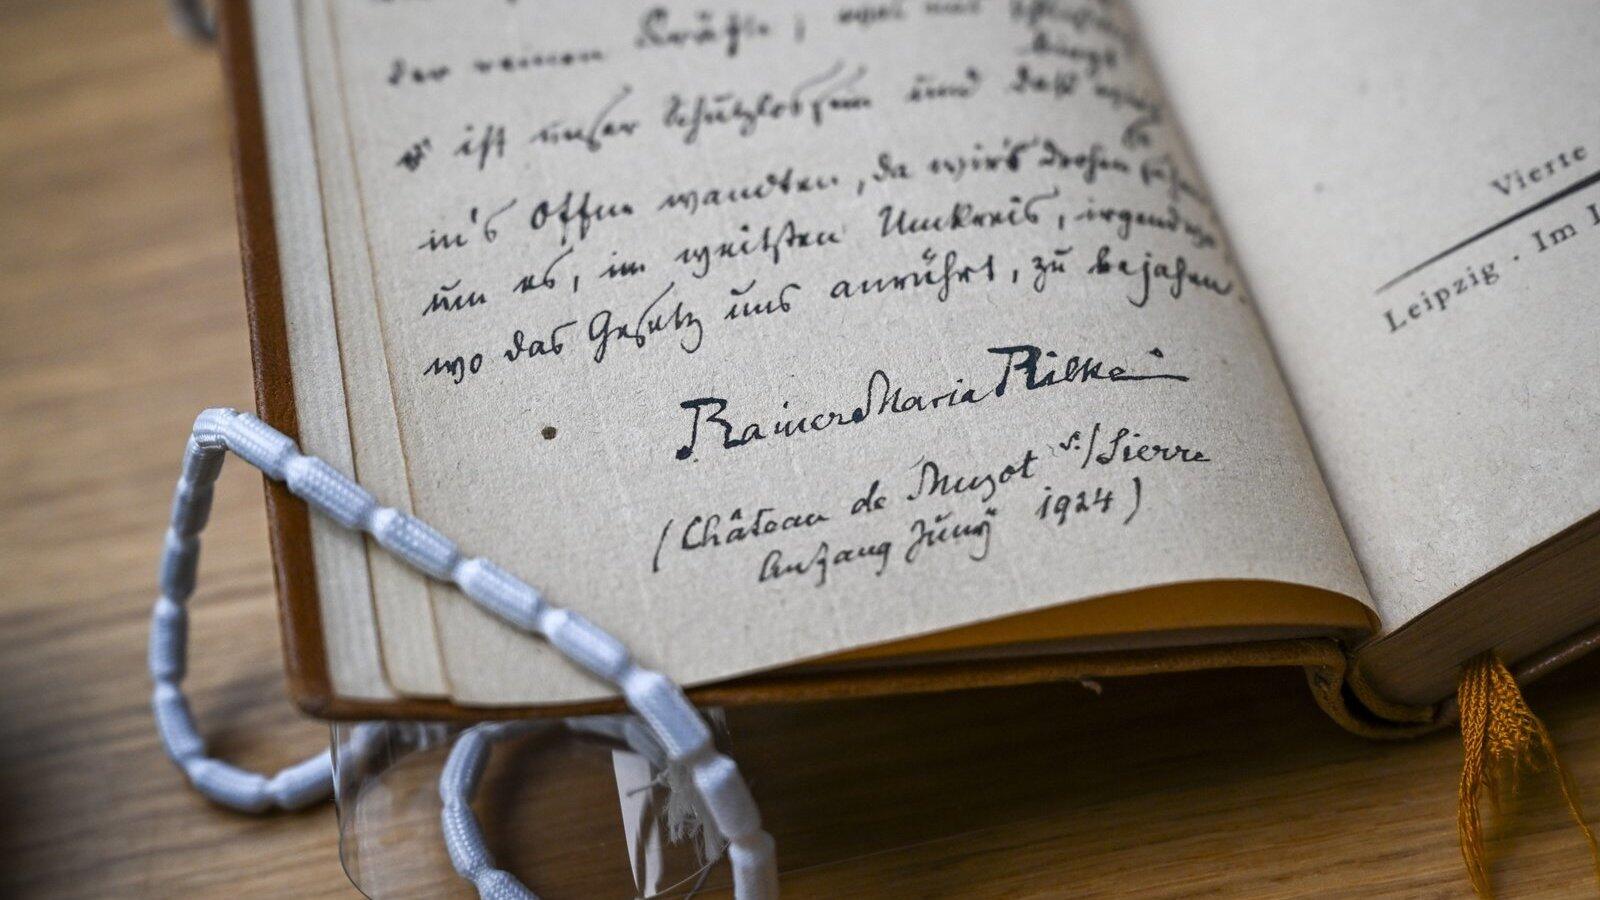 der reinen Kräfte; was uns schließlich
birgt
ist unser Schutzlossein und daß wir's
so
in's Offne wandten, da wir's drohen sahen
um es, im weitsten Umkreis, irgendwo
wo das Gesetz uns anrührt, zu bejahen.
Rainer Maria Rilke
(Château de Muzot s./Sierre
Anfang Juny 1924)
Vierte
Leipzig · Im